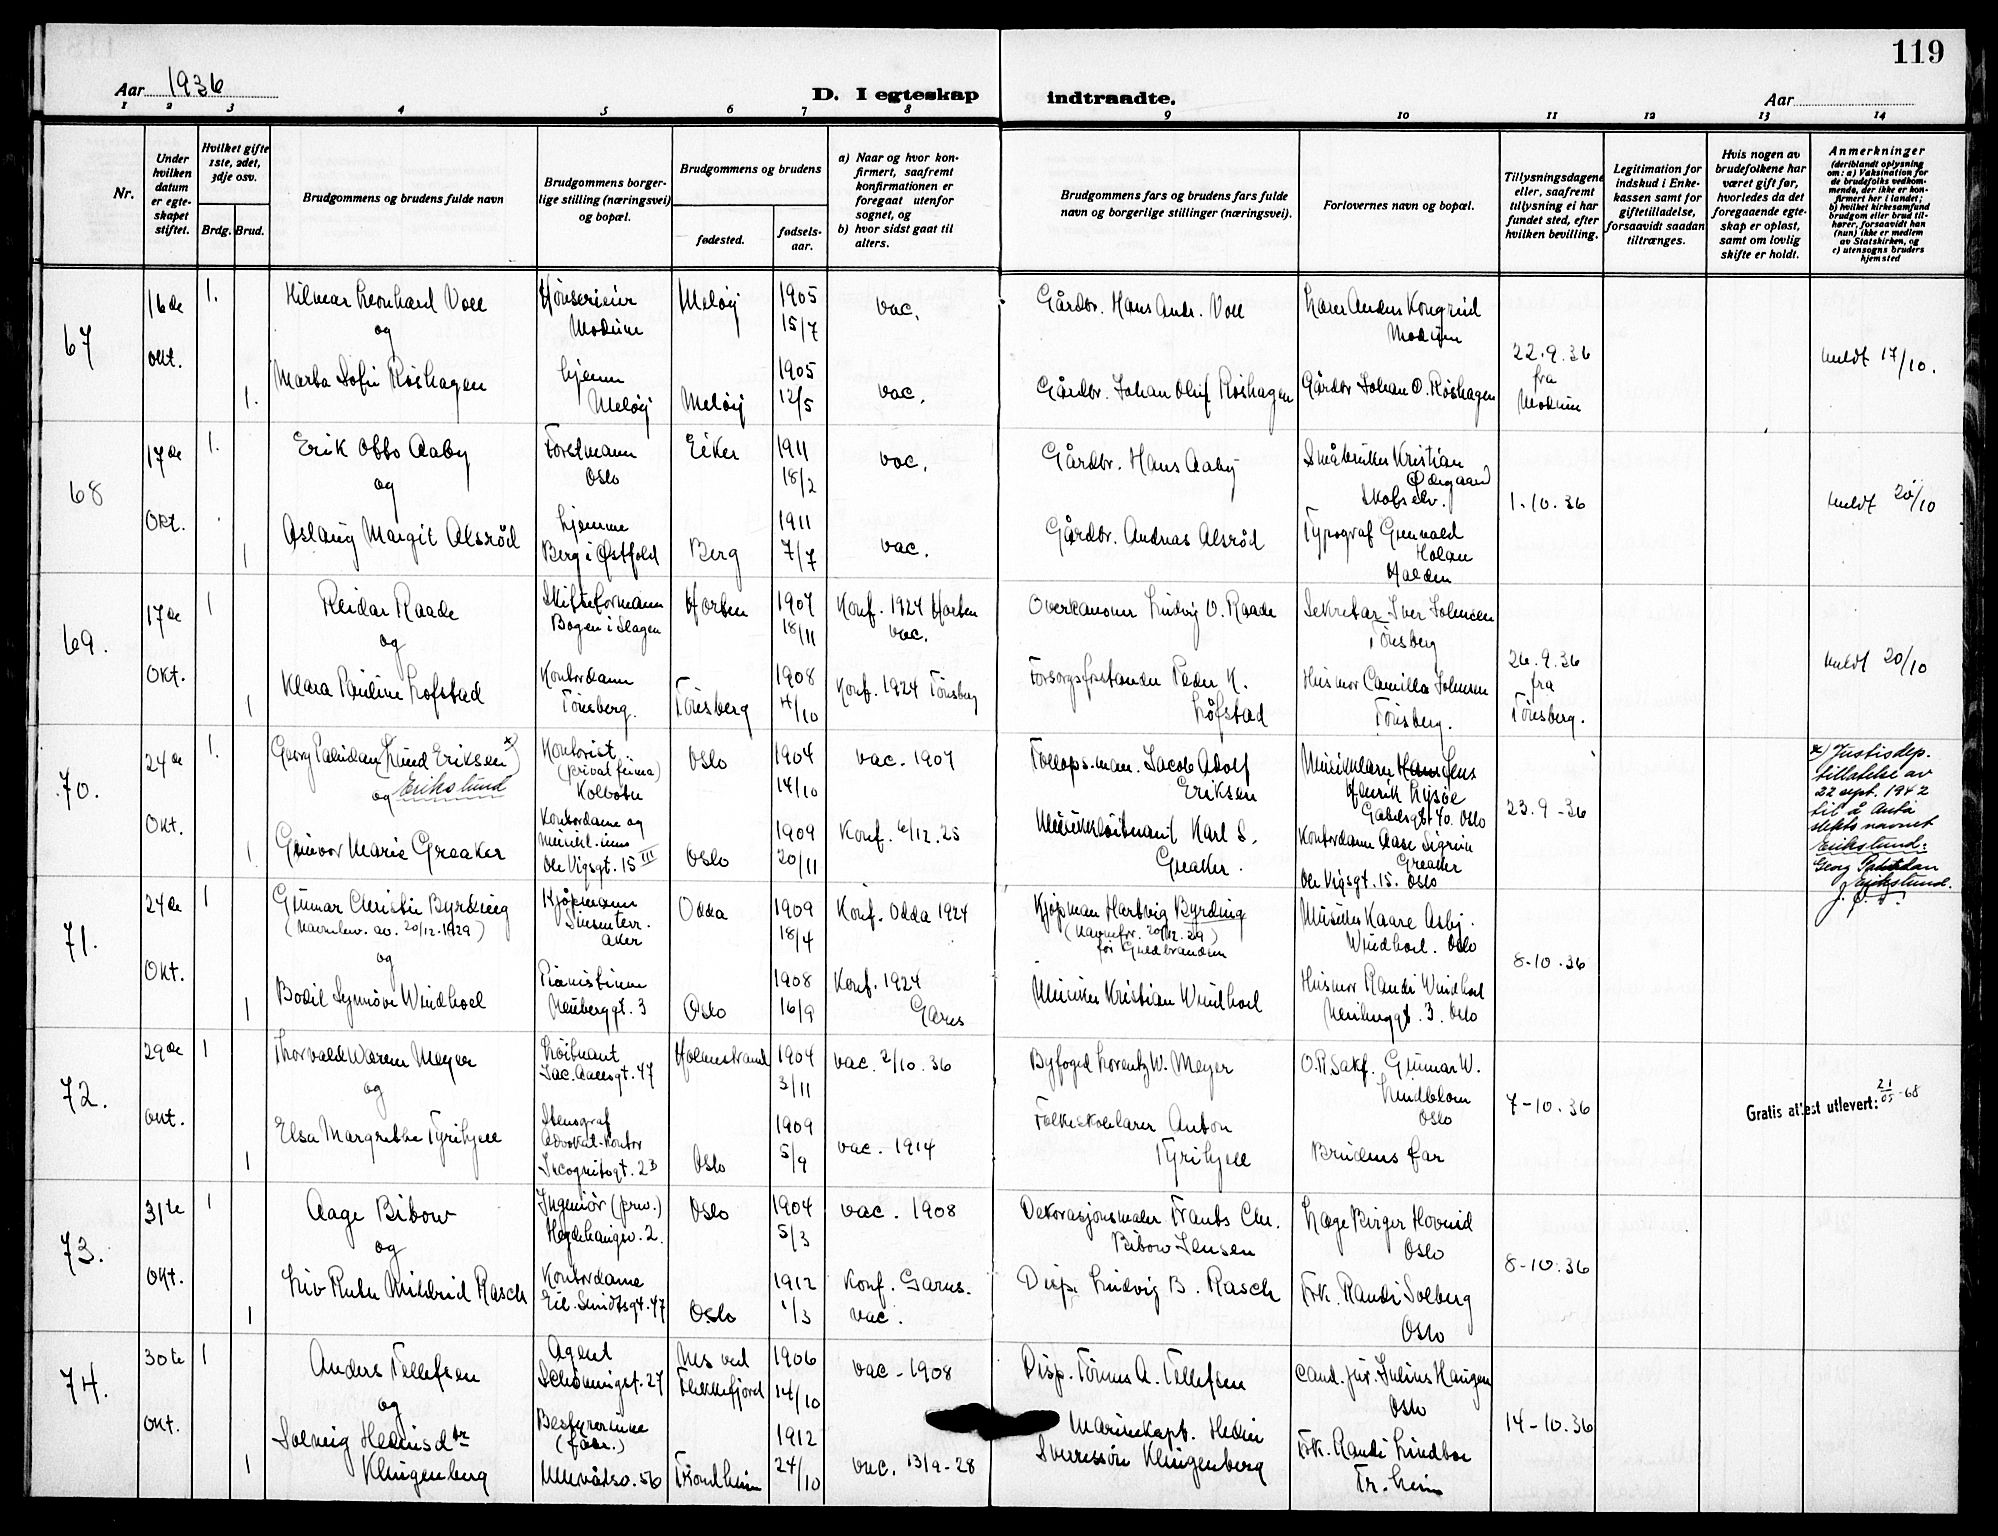 119
Aar 1936
D. I egteskap indtraadte.
Aar
1 2 3 4 5 6 7 8 9 10 11 12 13 14
Nr.
Under hvilken datum er egteskapet stiftet.
Hvilket gifte 1ste, 2det, 3dje osv.
Brdg. Brud.
Brudgommens og brudens fulde navn
Brudgommens borgerlige stilling (næringsvei) og bopæl.
Brudgommens og brudens
fødested.
fødselsaar.
a) Naar og hvor konfirmert, saafremt konfirmationen er foregaat utenfor sognet, og
b) hvor sidst gaat til alters.
Brudgommens fars og brudens fars fulde navn og borgerlige stillinger (næringsvei).
Forlovernes navn og bopæl.
Tillysningsdagene eller, saafremt tillysning ei har fundet sted, efter hvilken bevilling.
Legitimation for indskud i Enkekassen samt for giftetilladelse, forsaavidt saadan tiltrænges.
Hvis nogen av brudefolkene har været gift før, hvorledes da det foregaaende egteskap er opløst, samt om lovlig skifte er holdt.
Anmerkninger
(deriblandt oplysning om: a) Vaksination for de brudefolks vedkommende, der ikke er konfirmert her i landet; b) hvilket kirkesamfund brudgom eller brud tilhører, forsaavidt han (hun) ikke er medlem av Statskirken, og c) utensogns bruders hjemsted
67 16de Okt. 1. Hilmar Leonhard Voll Hønserieier Modum Meløy 1905 15/7 vac. Gårdbr. Hans Andr. Voll Lærer Anders Kongrud Modum
og
1. Marta Sofie Røshagen hjemme Meløy Meløy 1905 12/5 vac. Gårdbr. Johan Oluf Røshagen Gårdbr Johan O. Røshagen
22.9.36 fra Modum
meldt 17/10.
68 17de Okt. 1. Erik Otto Aaby Forstmann Oslo Eiker 1911 18/2 vac. Gårdbr. Hans Aaby Småbruker Kristian Ødegaard Skotselv.
og
1 Aslaug Margit Alsrød hjemme Berg i Østfold Berg 1911 7/7 vac. Gårdbr. Andreas Alsrød Typograf Gunvald Holan Halden
1.10.36
meldt 20/10
69. 17de Okt. 1 Reidar Raade Skifteformann Bogen i Slagen Horten 1907 18/11 Konf. 1924 Horten vac. Overkanoner Ludvig O. Raade Sekretær Iver Johnsen Tønsberg
og
1 Klara Pauline Løfstad Kontordame Tønsberg. Tønsberg 1908 4/10 Konf. 1924 Tønsberg Forsorgsforstander Peder K. Løfstad Husmor Camilla Johnsen Tønsberg.
26.9.36 fra Tønsberg.
meldt 20/10
70. 24de Okt. 1. Georg Paludan (Lund Eriksen) x) Erikslund Kontorist (privat firma) Kolbotn Oslo 1904 14/10 vac. 1907 Tollops.man. Jacob Adolf Eriksen Musiklærer Hans Jens Henrik Lysøe Gabelsgt 40. Oslo
og
1 Gunvor Marie Greaker Kontordame og musikl.inne Ole Vigsgt. 15 III Oslo 1909 20/11 Konf. 6/12.25 Musikløitnant Karl S. Greaker. Kontordame Aase Sigrun Greaker Ole Vigsgt. 15. Oslo
23.9-36
x) Justisdep. tillatelse av 22 sept. 1942 til å anta slektsnavnet Erikslund: Georg Paludan Erikslund.
71. 24de Okt. 1 Gunnar Christie Byrding (Navnebev. av. 20/12.1929) Kjøpmann Sinsenterr. Aker Odda 1909 18/4 Konf. Odda 1924 Kjøpman Hartvig Byrding (Navnefor. 20/12.29) før Guldbrandsen Musiker Kaare Asbj. Windhol. Oslo
og
1 Bodil Synnøve Windhol Pianistinne Neuberggt. 3 Oslo 1908 16/9 Konf. 1924 Garns Musiker Kristian Windhol Husmor Randi Windhol Neuberggt. 3. Oslo
8-10.36
72. 29de Okt. 1 Thorvald Waren Meyer Løitnant Jac. Aallsgt. 47 Holmestrand 1904 3/11 vac. 2/10.36 Byfoged Lorentz W. Meyer O.R.Sakf. Gunnar W. Lindblom Oslo
og
1 Elsa Margrethe Tyrihjell Stenograf Advokat-kontor Incognitogt. 23 Oslo 1909 5/9 vac. - 1914 Folkeskolelærer Anton Tyrihjell Brudens far
7-10.36
Gratis attest utlevert: 21/05-68
73. 31te Okt. 1 Aage Bibow Ingeniør (priv.) Hegdehaugsv. 2. Oslo 1904 5/3 vac. 1908 Dekorasjonsmaler Frants Chr. Bibow Jensen Læge Birger Hovind Oslo
og
1 Liv Ruth Mildrid Rasch Kontordame Eil. Sundtsgt. 47 Oslo 1912 1/3 Konf. Garns. vac. Disp. Ludvig B. Rasch Frk. Randi Solberg Oslo
8-10.36
74. 30te Okt. 1 Anders Tellefsen Agent Schønningst. 27 Nes ved Flekkefjord 1906 14/10 vac - 1908 Disp. Tønnes A. Tellefsen Cand. jur. Julius Haugen Oslo
og
1 Solveig Hedinsdtr Klingenberg Bestyrerinne (fabr.) Ullevålsv. 56 Trondheim 1912 24/10 vac. 13/9-28 Marinekapt. Hedin Sverressøn Klingenberg Frk. Randi Lindboe Tr.heim
14-10.36